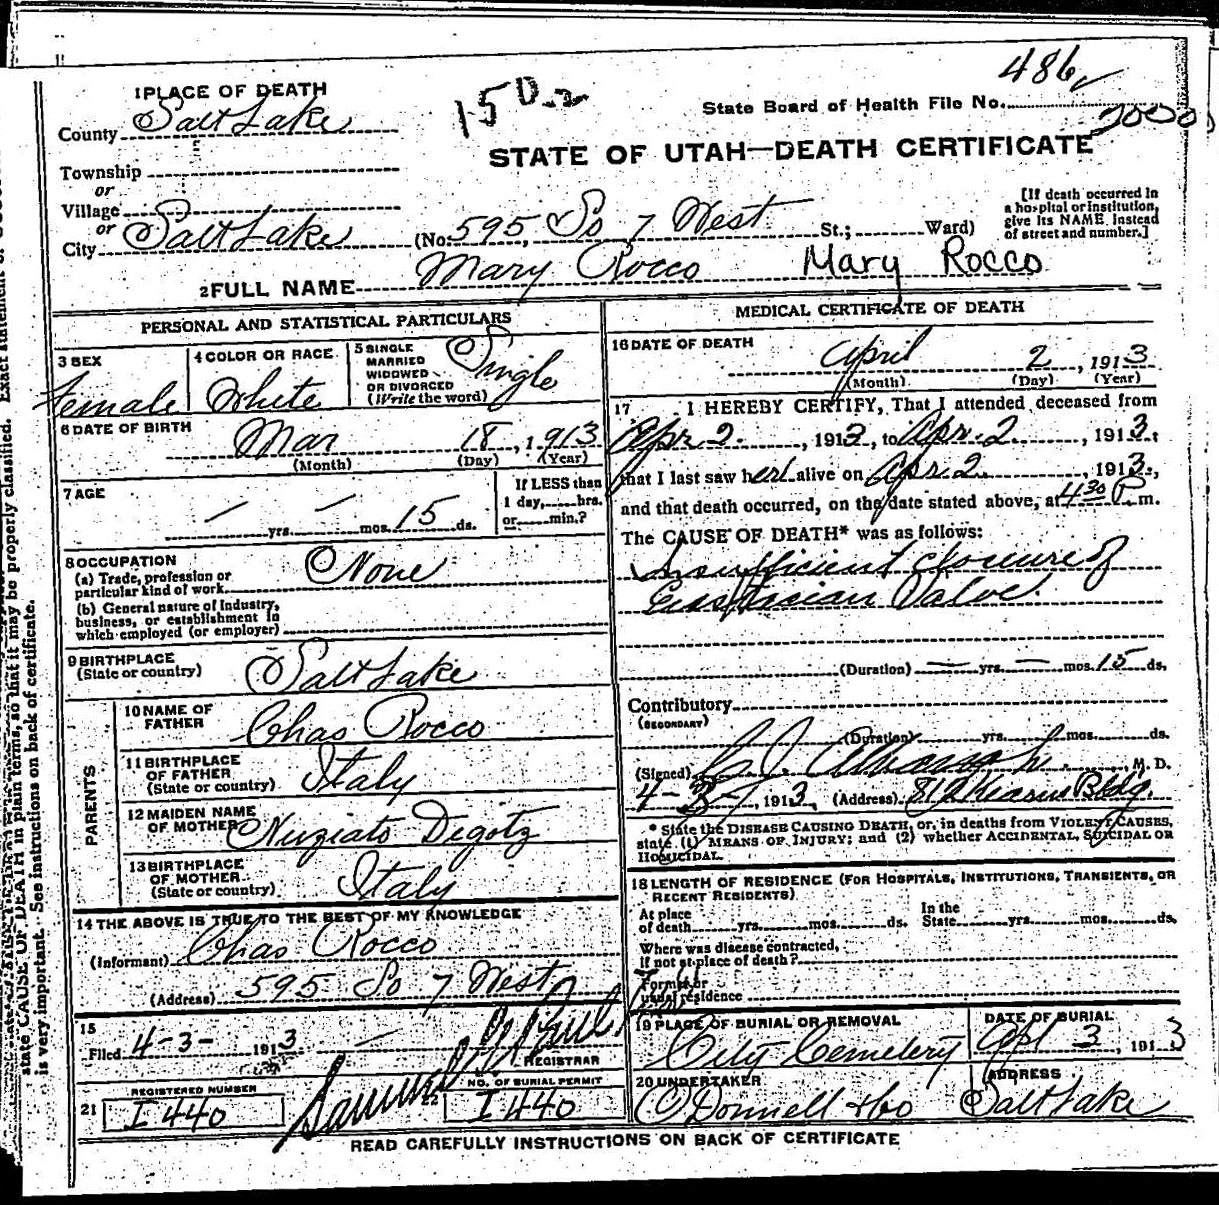 486
15 D
State Board of Health File No.
2000
STATE OF UTAH—DEATH CERTIFICATE
1 PLACE OF DEATH
County Salt Lake
Township
or
Village
or
City Salt Lake (No. 595, So 7 West St.; Ward)
[If death occurred in
a hospital or institution,
give its NAME instead
of street and number.]
2 FULL NAME Mary Rocco Mary Rocco
PERSONAL AND STATISTICAL PARTICULARS
3 SEX
Female
4 COLOR OR RACE
White
5 SINGLE
MARRIED
WIDOWED
OR DIVORCED
(Write the word)
Single
6 DATE OF BIRTH
Mar 18, 1913
(Month) (Day) (Year)
7 AGE
— yrs. — mos. 15 ds.
If LESS than
1 day, hrs.
or min.?
8 OCCUPATION
(a) Trade, profession or
particular kind of work None
(b) General nature of Industry,
business, or establishment in
which employed (or employer)
9 BIRTHPLACE
(State or country) Salt Lake
PARENTS
10 NAME OF
FATHER Chas Rocco
11 BIRTHPLACE
OF FATHER
(State or country) Italy
12 MAIDEN NAME
OF MOTHER Nuziato Degotz
13 BIRTHPLACE
OF MOTHER
(State or country) Italy
14 THE ABOVE IS TRUE TO THE BEST OF MY KNOWLEDGE
(Informant) Chas Rocco
(Address) 595 So 7 West
15
Filed 4-3- 1913
REGISTRAR
REGISTERED NUMBER
21 I 440
NO. OF BURIAL PERMIT
22 I 440
MEDICAL CERTIFICATE OF DEATH
16 DATE OF DEATH
April 2, 1913
(Month) (Day) (Year)
17 I HEREBY CERTIFY, That I attended deceased from
Apr. 2, 1913, to Apr. 2, 1913,
that I last saw her alive on Apr 2, 1913,
and that death occurred, on the date stated above, at 4 30 P. m.
The CAUSE OF DEATH* was as follows:
Insufficient closure of
Eustacian Valve.
(Duration) — yrs. — mos. 15 ds.
Contributory
(SECONDARY)
(Duration) yrs. mos. ds.
(Signed) M. D.
4-3-, 1913, (Address) 812 Kearns Bldg.
* State the DISEASE CAUSING DEATH, or, in deaths from VIOLENT CAUSES,
state (1) MEANS OF INJURY; and (2) whether ACCIDENTAL, SUICIDAL OR
HOMICIDAL.
18 LENGTH OF RESIDENCE (FOR HOSPITALS, INSTITUTIONS, TRANSIENTS, OR
RECENT RESIDENTS)
At place
of death yrs. mos. ds.
In the
State yrs. mos. ds.
Where was disease contracted,
if not at place of death?
Former or
usual residence
19 PLACE OF BURIAL OR REMOVAL
City Cemetery
DATE OF BURIAL
Apl 3, 1913
20 UNDERTAKER
O'Donnell & Co
ADDRESS
Salt Lake
READ CAREFULLY INSTRUCTIONS ON BACK OF CERTIFICATE
state CAUSE OF DEATH in plain terms, so that it may be properly classified. Exact statement of
is very important. See instructions on back of certificate.